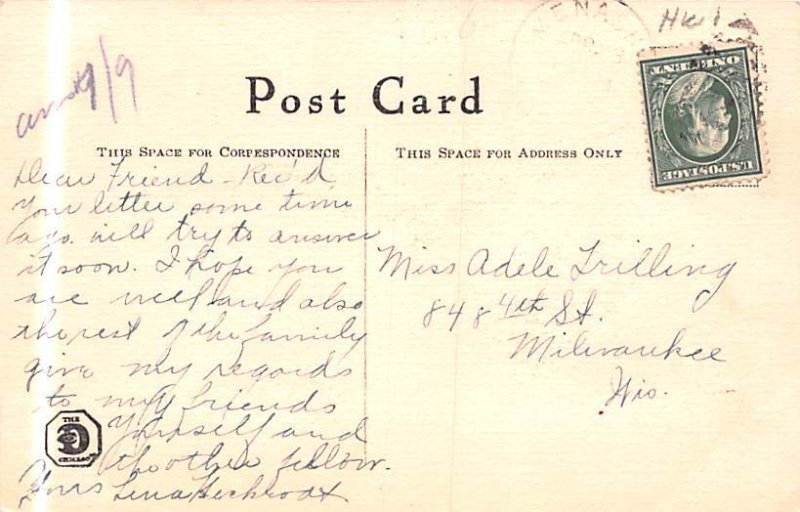 MENASH
Post Card
THIS SPACE FOR CORRESPONDENCE
THIS SPACE FOR ADDRESS ONLY
ONE CENT
U.S. POSTAGE
Dear Friend - Rec'd
your letter some time
ago. will try to answer
it soon. I hope you
are well and also
the rest of the family
give my regards
to my friends
Yourself and
the other fellow.
Yours Lena
Miss Adele Trilling
848 4th St.
Milwaukee
Wis.
THE
CHICAGO